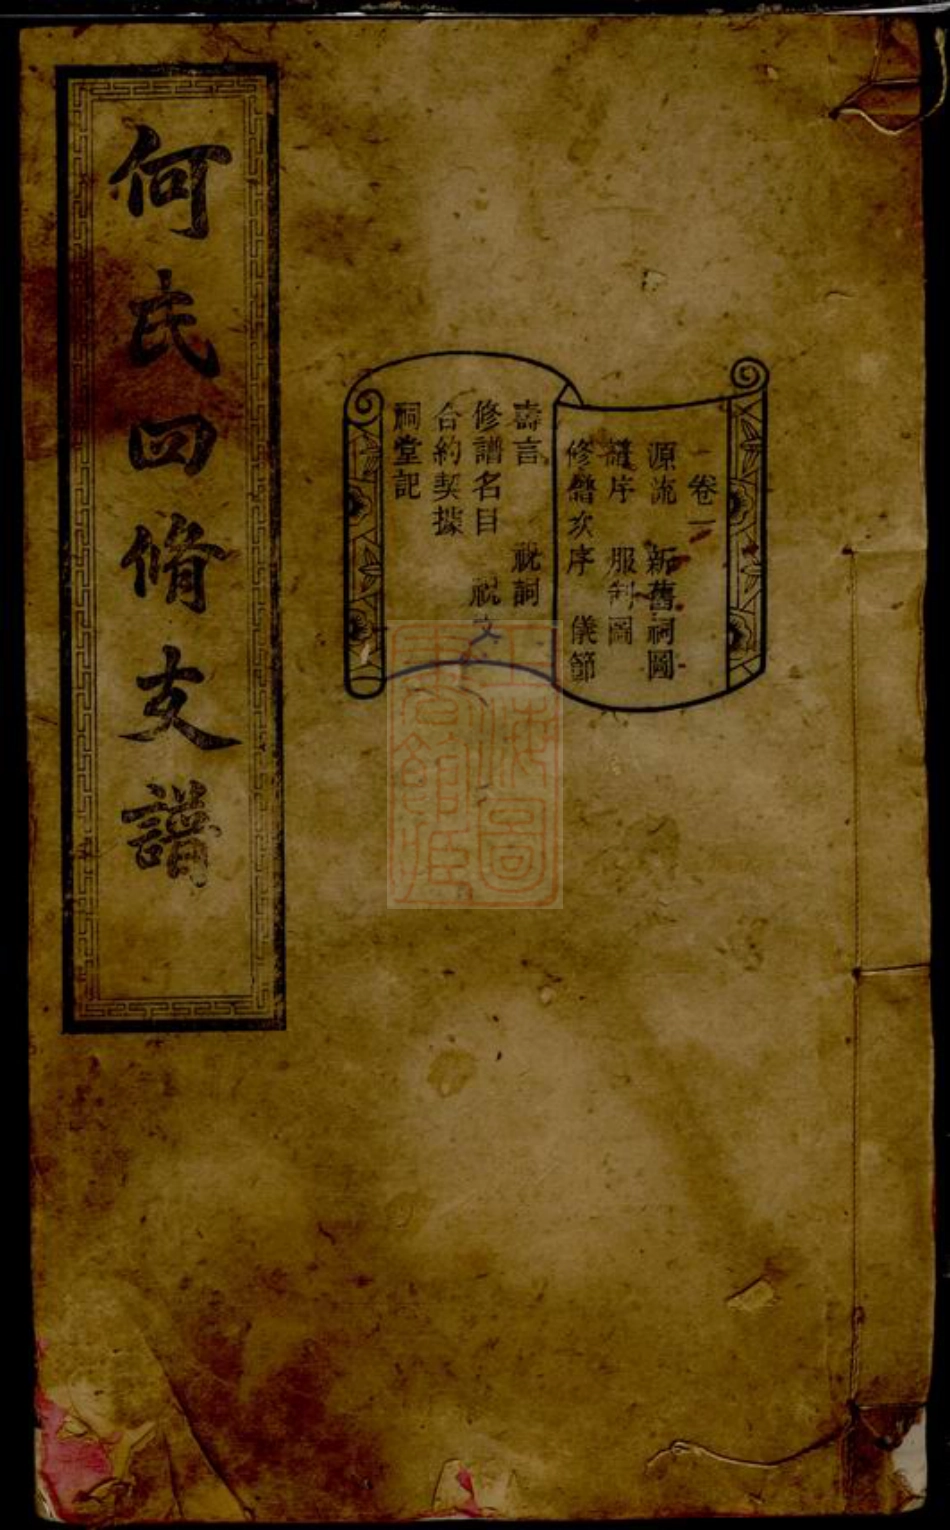 何氏四脩支譜
卷一
源流 新舊祠圖
譜序 服制圖
修譜次序 儀節
壽言 祝詞
修譜名目 祝文
合約契據
祠堂記
上海圖書館藏